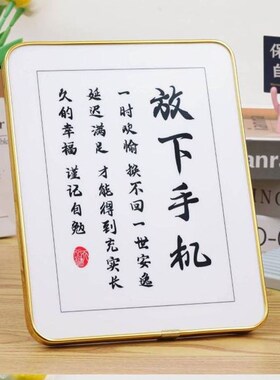 放下手机
一时欢愉 换不回一世安逸
延迟满足 才能得到充实长
久的幸福 谨记自勉
保
自